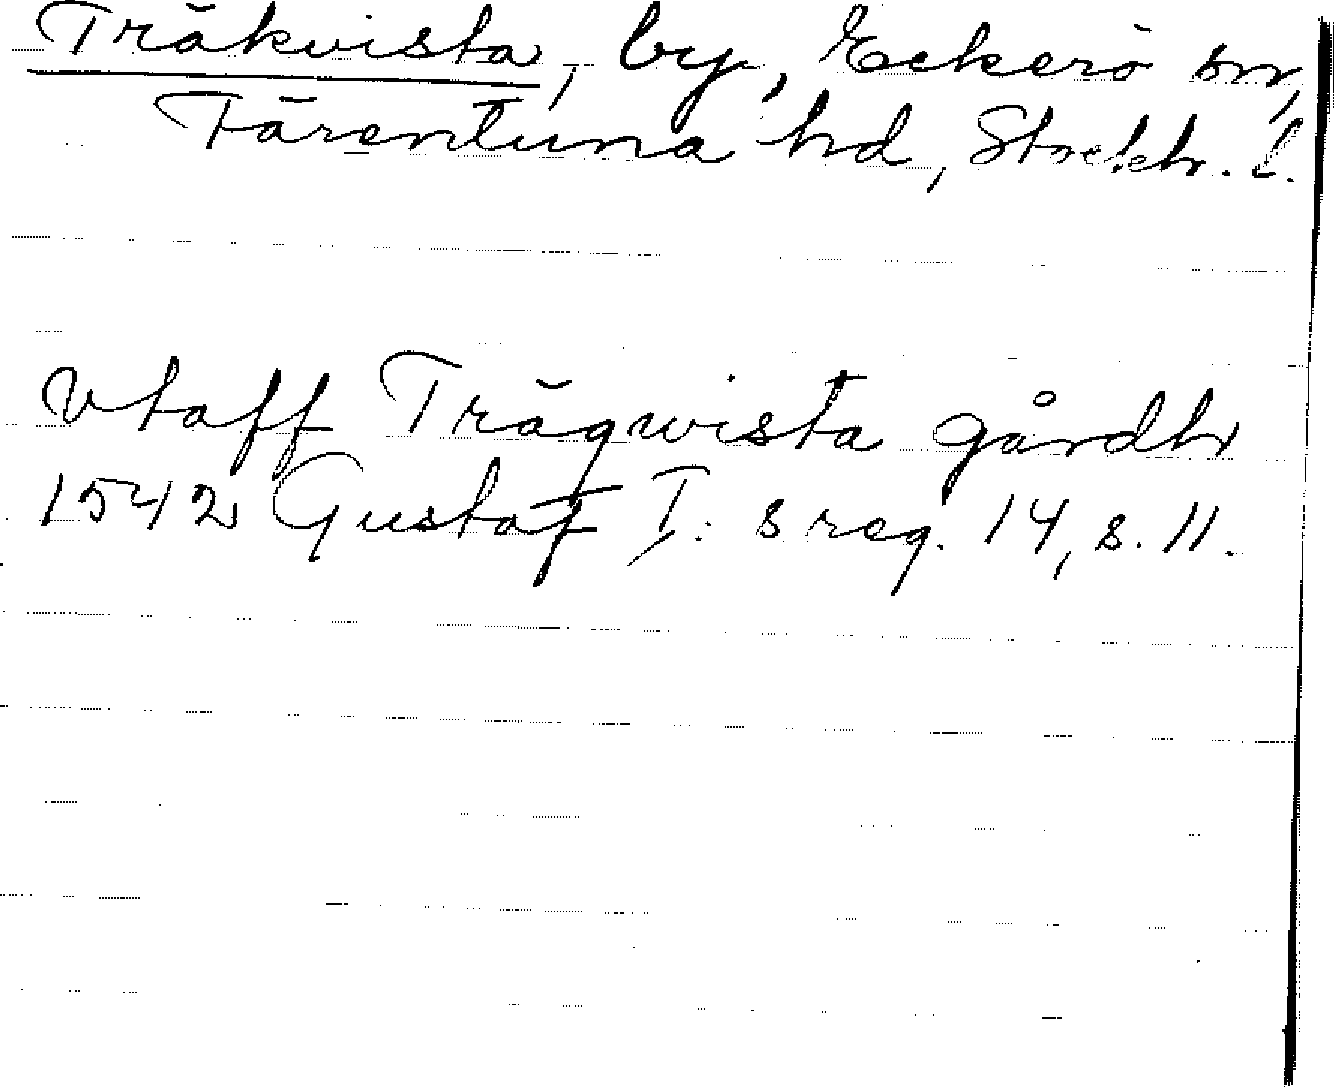 Träkvista, by, Eckerö sn,
Färentuna hd, Stockh. l.
Vtaff Trägwista gårdh
1542 Gustaf I:s reg. 14, s. 11.